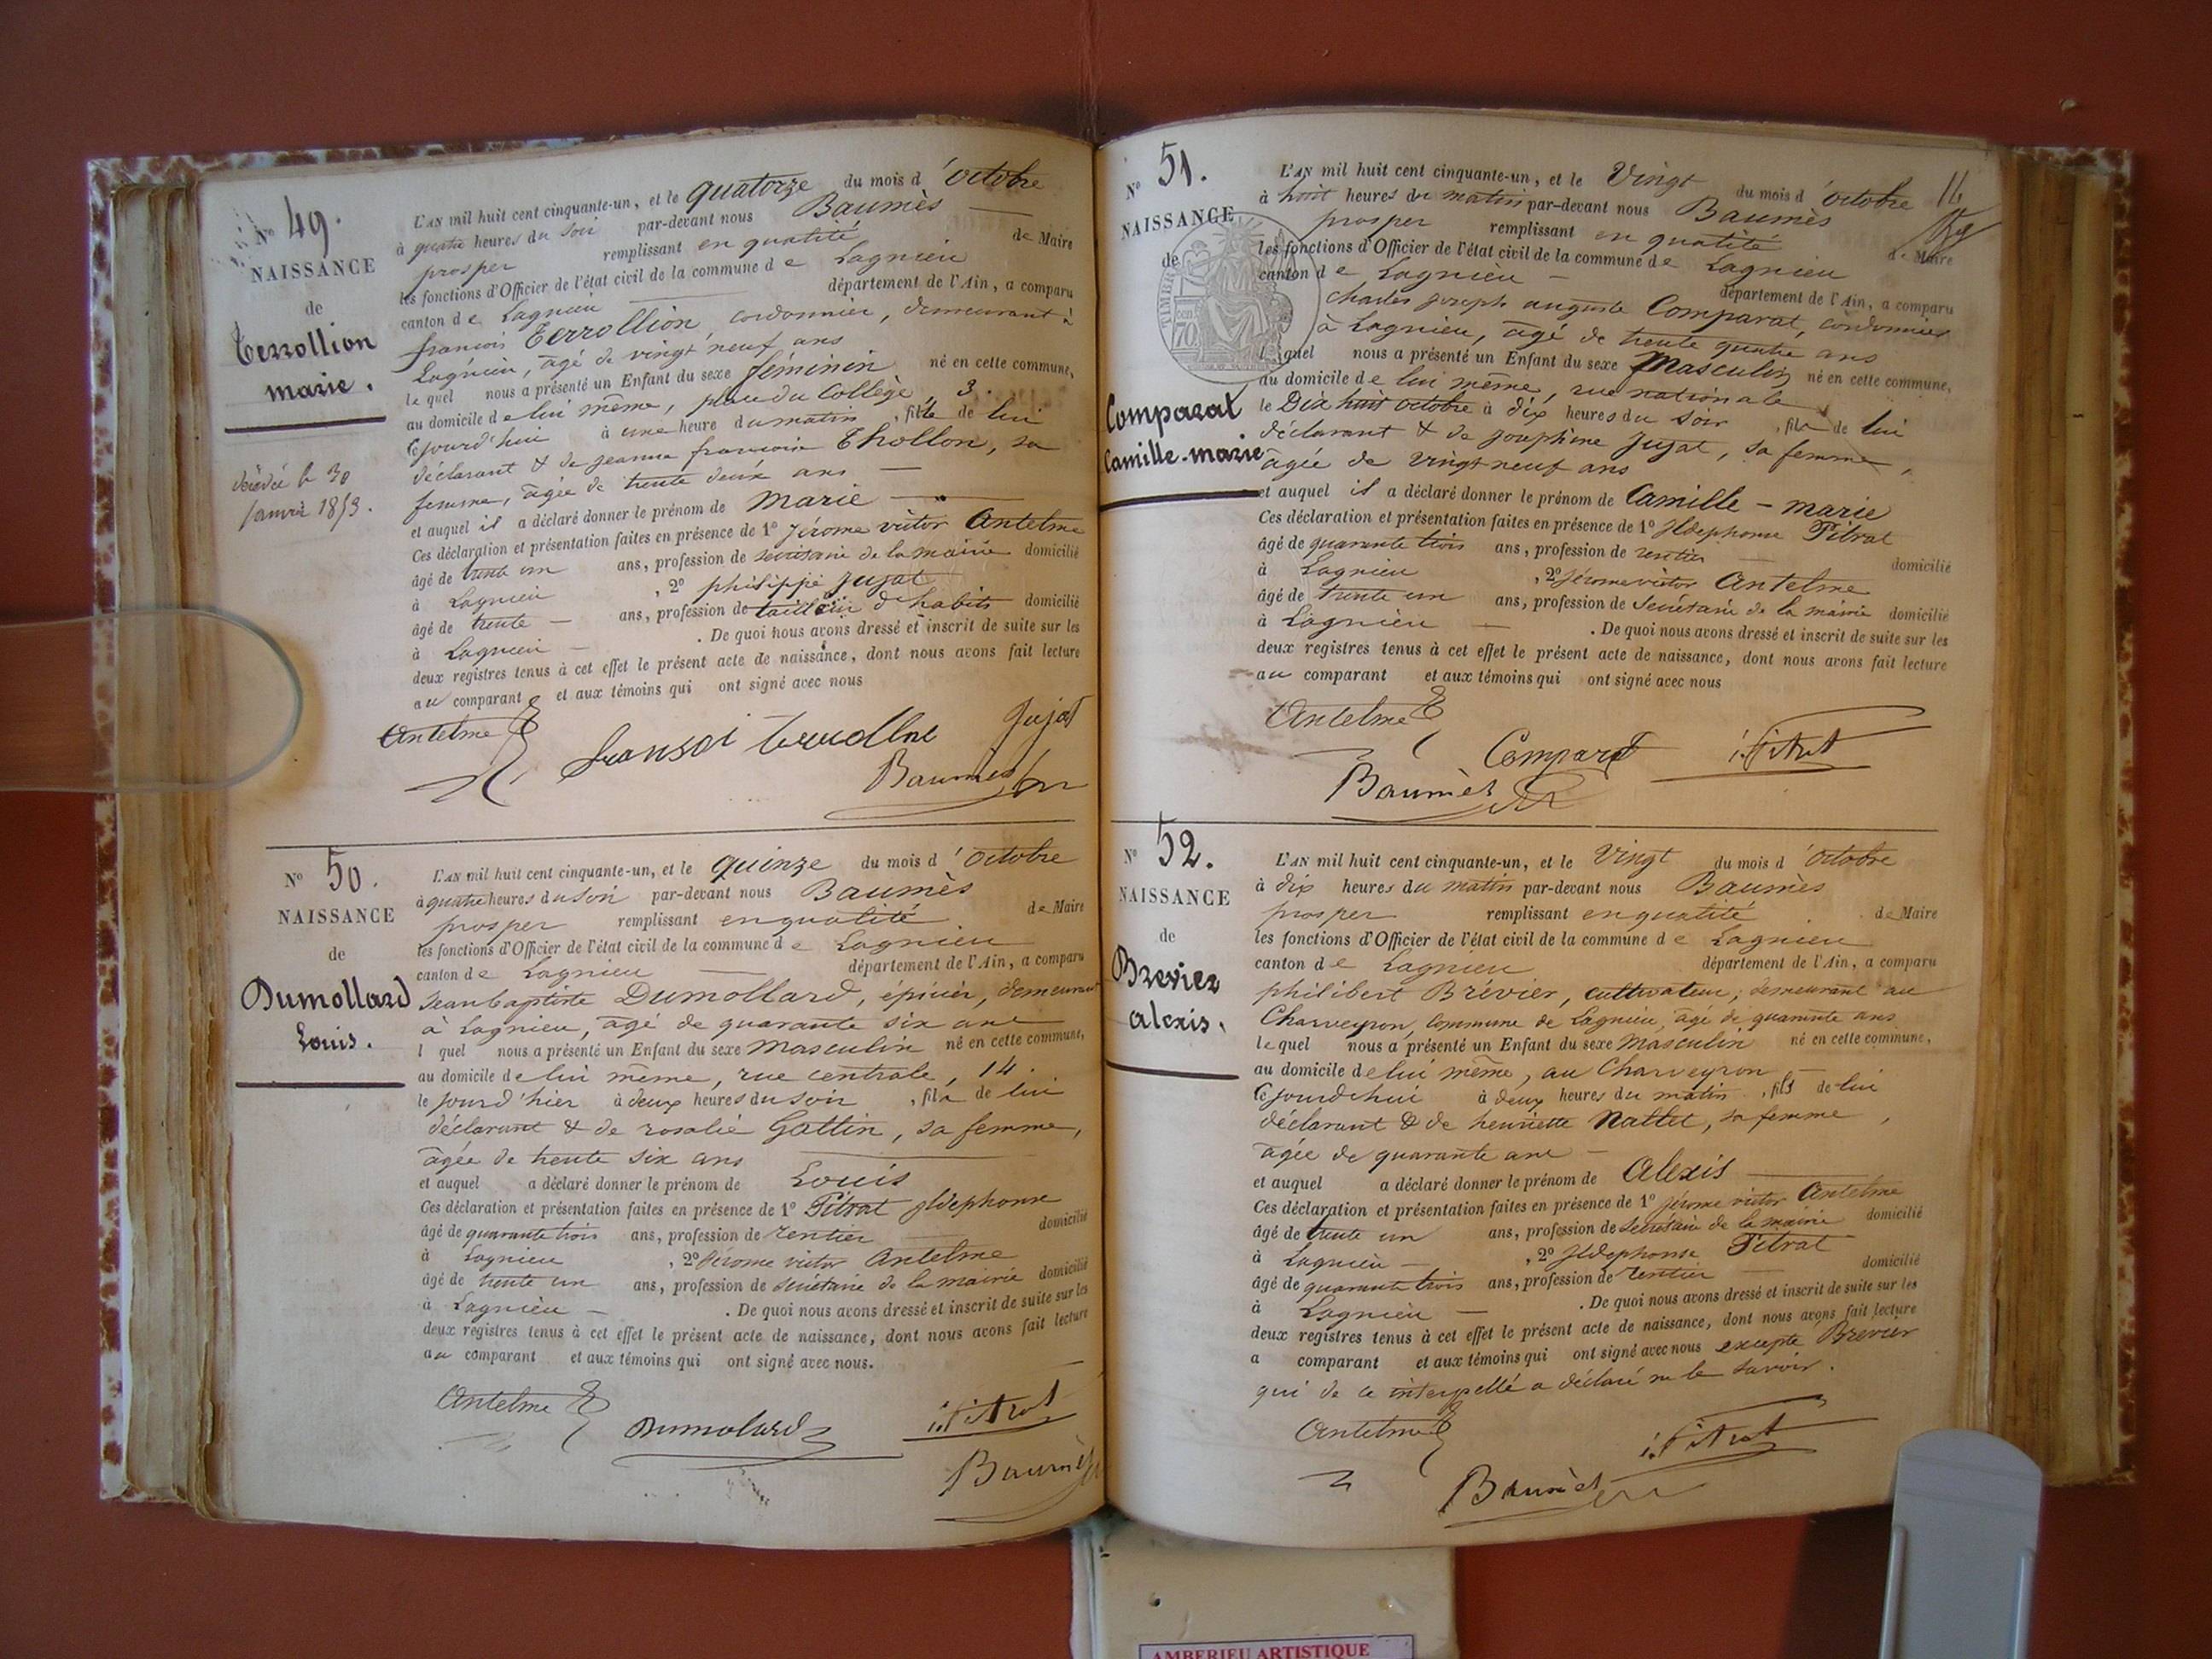 N° 49.
NAISSANCE
de
Terrollion
marie.
décédé le 30
janvier 1853.
L'AN mil huit cent cinquante-un, et le quatorze du mois d'octobre
à quatre heures du soir par-devant nous Baumès
prosper remplissant en qualité de Maire
les fonctions d'Officier de l'état civil de la commune de Lagnieu
canton de Lagnieu département de l'Ain, a comparu
francois Terrollion, cordonnier, demeurant à
Lagnieu, âgé de vingt neuf ans
lequel nous a présenté un Enfant du sexe féminin né en cette commune,
au domicile de lui même, place du Collège 3.
Cejourd'hui à une heure du matin, fille de lui
déclarant & de jeanne francoise Thollon, sa
femme, âgée de trente deux ans
et auquel il a déclaré donner le prénom de Marie
Ces déclaration et présentation faites en présence de 1° Jérome victor Antelme
âgé de trente un ans, profession de secrétaire de la mairie domicilié
à Lagnieu, 2° philippe Jujat
âgé de trente ans, profession de tailleur d'habits domicilié
à Lagnieu. De quoi nous avons dressé et inscrit de suite sur les
deux registres tenus à cet effet le présent acte de naissance, dont nous avons fait lecture
au comparant et aux témoins qui ont signé avec nous
Antelme
Jujat
Baumès
N° 50.
NAISSANCE
de
Dumollard
Louis.
L'AN mil huit cent cinquante-un, et le quinze du mois d'octobre
à quatre heures du soir par-devant nous Baumès
prosper remplissant en qualité de Maire
les fonctions d'Officier de l'état civil de la commune de Lagnieu
canton de Lagnieu département de l'Ain, a comparu
Jean baptiste Dumollard, épicier, demeurant
à Lagnieu, âgé de quarante six ans
l quel nous a présenté un Enfant du sexe Masculin né en cette commune,
au domicile de lui même, rue centrale, 14.
le jourd'hier à deux heures du soir, fils de lui
déclarant & de rosalie Gattin, sa femme,
âgée de trente six ans
et auquel a déclaré donner le prénom de Louis
Ces déclaration et présentation faites en présence de 1° Pitrat Ildephonse
âgé de quarante trois ans, profession de rentier domicilié
à Lagnieu, 2° Jérome victor Antelme
âgé de trente un ans, profession de secrétaire de la mairie domicilié
à Lagnieu. De quoi nous avons dressé et inscrit de suite sur les
deux registres tenus à cet effet le présent acte de naissance, dont nous avons fait lecture
au comparant et aux témoins qui ont signé avec nous.
Antelme
Dumolard
i. Pitrat
Baumès
14
N° 51.
NAISSANCE
de
TIMBRE
70
Comparat
Camille-marie
L'AN mil huit cent cinquante-un, et le Vingt du mois d'octobre
à huit heures du matin par-devant nous Baumès
prosper remplissant en qualité de Maire
les fonctions d'Officier de l'état civil de la commune de Lagnieu
canton de Lagnieu département de l'Ain, a comparu
Charles joseph auguste Comparat, cordonnier
à Lagnieu, âgé de trente quatre ans
lequel nous a présenté un Enfant du sexe Masculin né en cette commune,
au domicile de lui même, rue nationale
le Dix huit octobre à dix heures du soir, fils de lui
déclarant & de joséphine Jujat, sa femme,
âgée de vingt neuf ans
et auquel il a déclaré donner le prénom de Camille - marie
Ces déclaration et présentation faites en présence de 1° Ildephonse Pitrat
âgé de quarante trois ans, profession de rentier domicilié
à Lagnieu, 2° Jérome victor Antelme
âgé de trente un ans, profession de Secrétaire de la mairie domicilié
à Lagnieu. De quoi nous avons dressé et inscrit de suite sur les
deux registres tenus à cet effet le présent acte de naissance, dont nous avons fait lecture
au comparant et aux témoins qui ont signé avec nous
Antelme
Comparat
i. Pitrat
Baumès
N° 52.
NAISSANCE
de
Brevier
alexis.
L'AN mil huit cent cinquante-un, et le Vingt du mois d'octobre
à dix heures du matin par-devant nous Baumès
prosper remplissant en qualité de Maire
les fonctions d'Officier de l'état civil de la commune de Lagnieu
canton de Lagnieu département de l'Ain, a comparu
philibert Brévier, cultivateur, demeurant au
Charveyron, commune de Lagnieu, âgé de quarante ans
lequel nous a présenté un Enfant du sexe Masculin né en cette commune,
au domicile de lui même, au Charveyron
Cejourd'hui à deux heures du matin, fils de lui
déclarant & de henriette Nallet, sa femme,
âgée de quarante ans
et auquel a déclaré donner le prénom de Alexis
Ces déclaration et présentation faites en présence de 1° Jérome victor Antelme
âgé de trente un ans, profession de secrétaire de la mairie domicilié
à Lagnieu, 2° Ildephonse Pitrat
âgé de quarante trois ans, profession de rentier domicilié
à Lagnieu. De quoi nous avons dressé et inscrit de suite sur les
deux registres tenus à cet effet le présent acte de naissance, dont nous avons fait lecture
a comparant et aux témoins qui ont signé avec nous excepté Brevier
qui de ce interpellé a déclaré ne le savoir.
Antelme
i. Pitrat
Baumès
AMBERIEU ARTISTIQUE